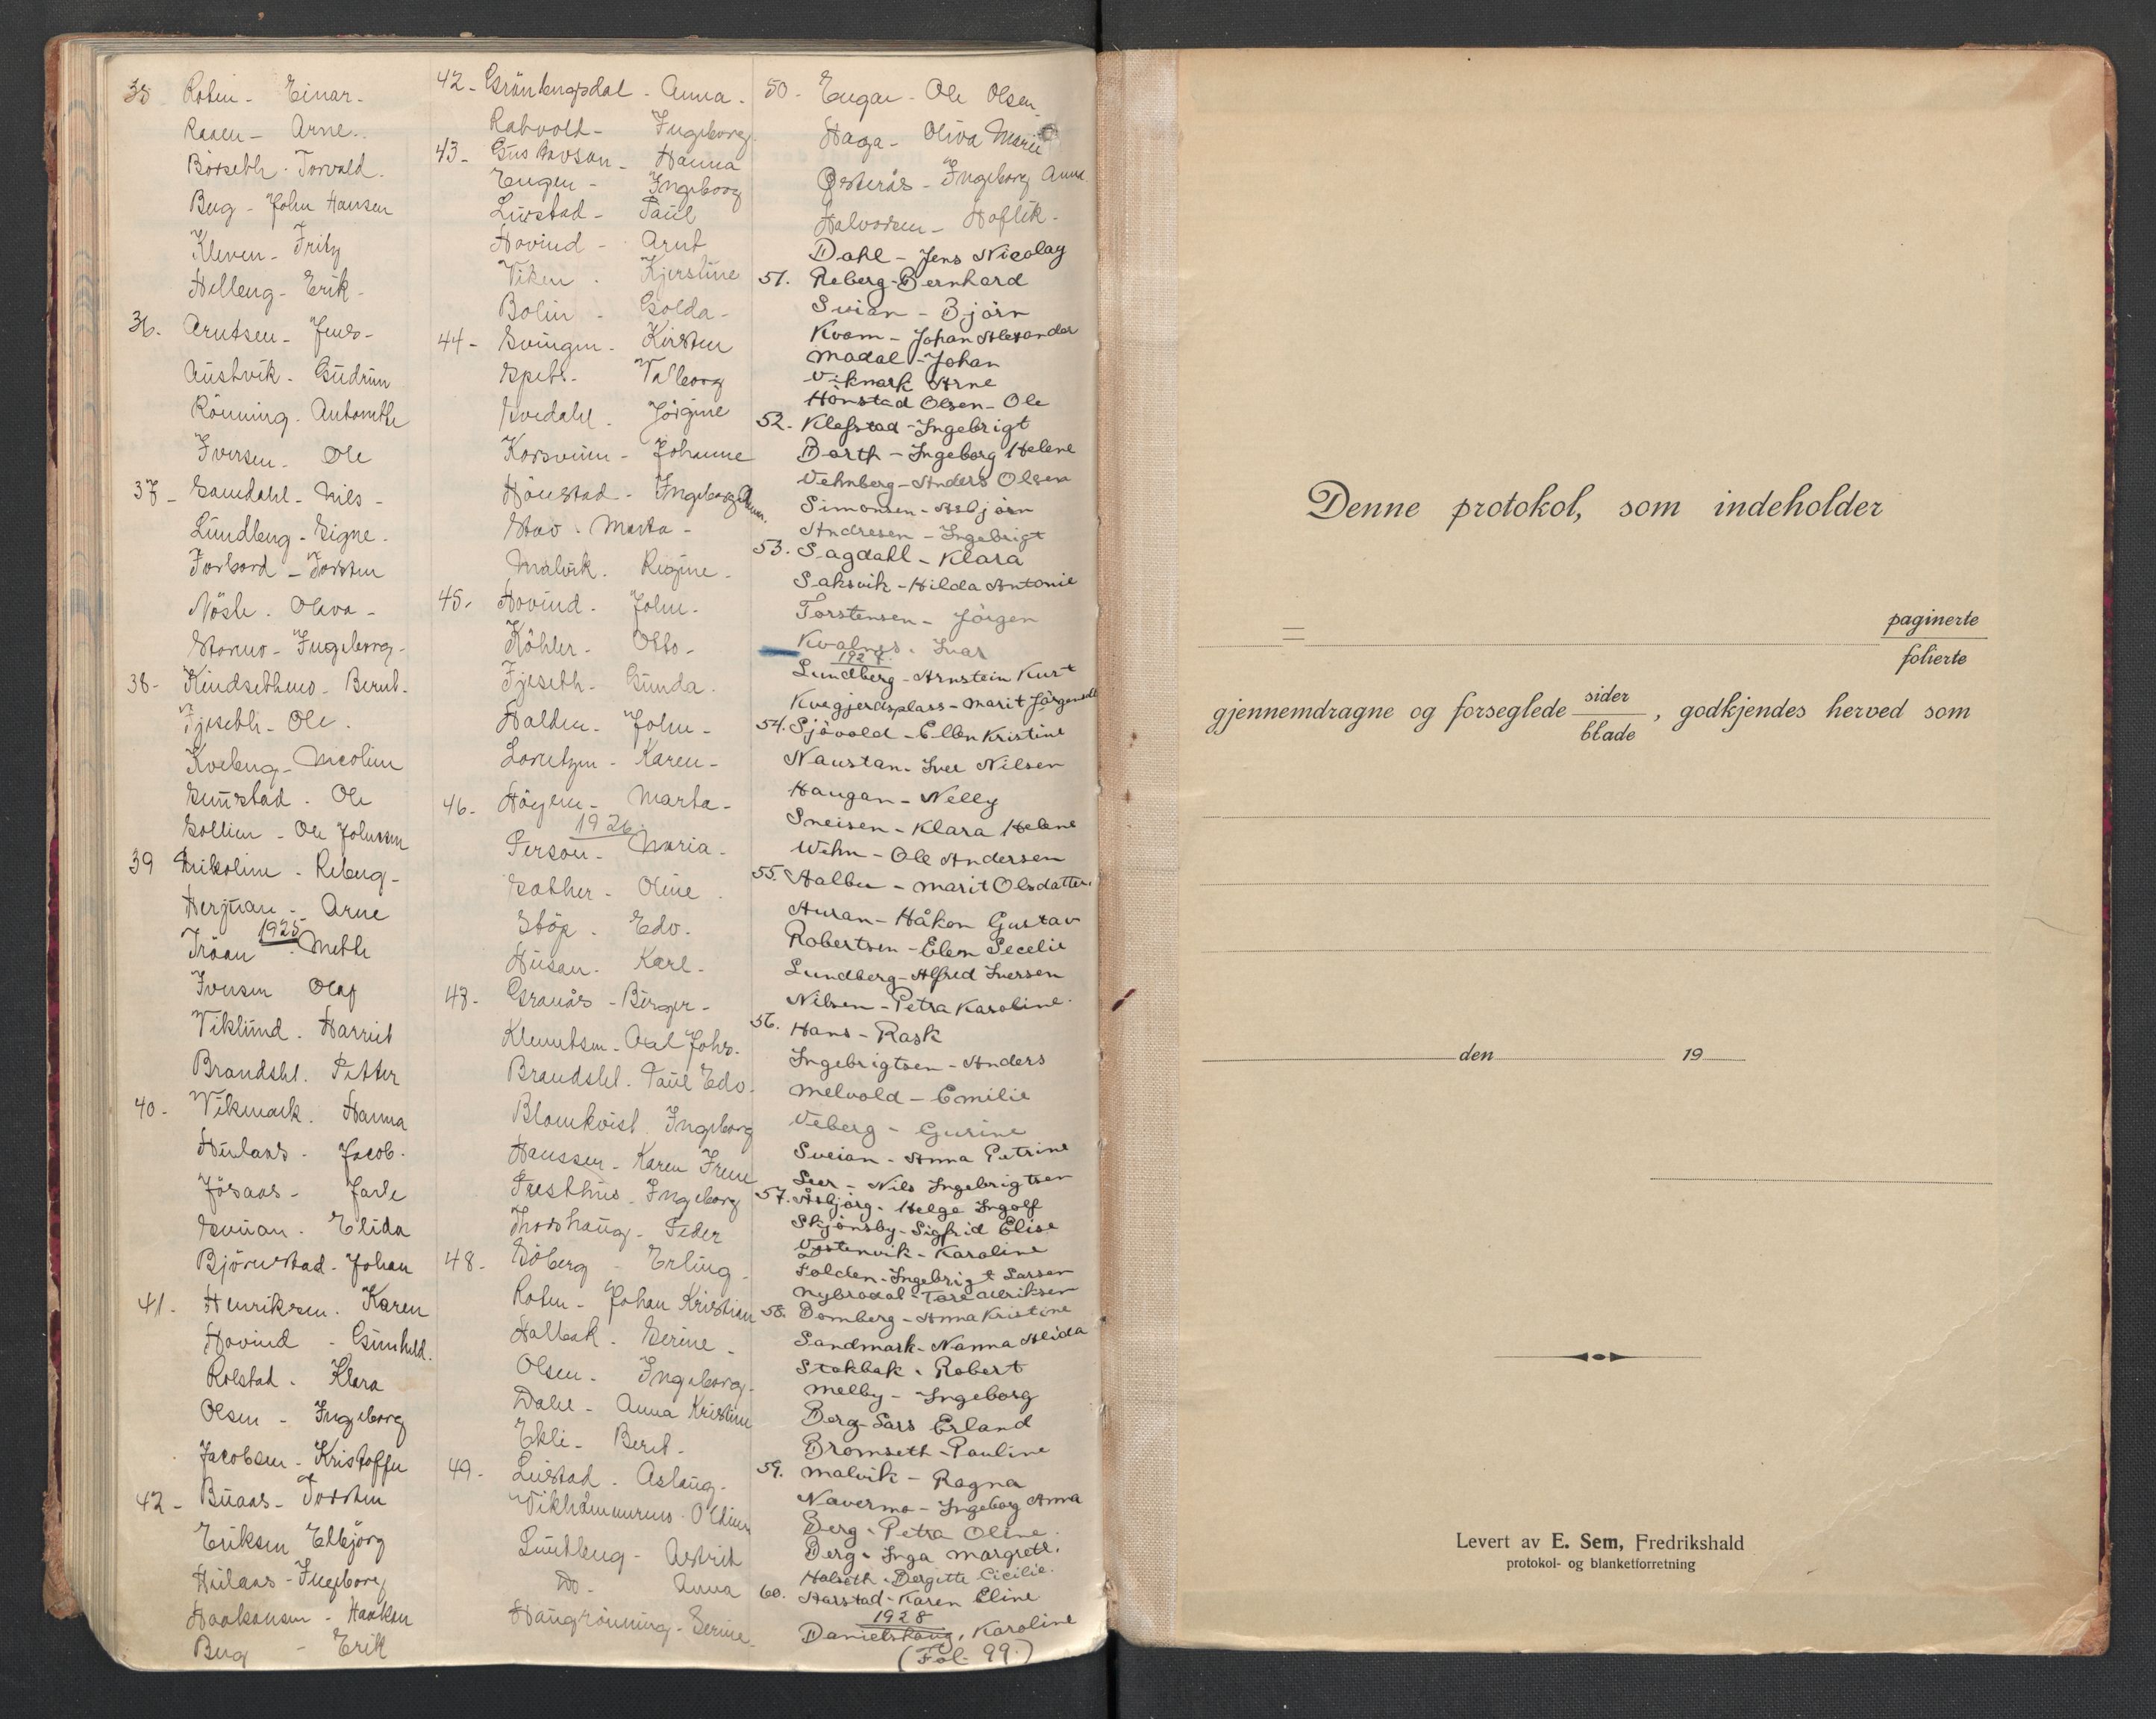 35 Rotin - Einar -
Raaen - Arne.
Börseth. Torvald.
Berg - John Hansen
Kleven - Fritz
Helleng - Erik -
36. Arntsen - Jens -
Austvik. Gudrun
Rönning. Antonette
Iversen - Ole
37 - Samdahl - Nils -
Lundberg - Signe.
Forbord - Torsten
Nösle. Olava -
Stormo - Ingeborg -
38 - Kindsethmo - Bernt.
Fjeseth - Ole.
Kveberg - Nicoline
Sunstad. Ole
Sollien - Ole Johnsen
39 Nikoline - Reberg -
Herjuan - Arne
1925
Tröan. Methe
Iversen Olaf
Viklund. Harriet
Brandshl. Petter
40 - Vikmark. Hanna
Hulaas - Jacob.
Jösaas - Jarle
Svean. Elida
Björnstad. Johan
41 - Henriksen. Karen
Hovind - Gunhild.
Rolstad. Klara
Olsen - Ingeborg
Jacobsen - Kristoffer
42 - Buaas - Torsten
Eriksen Elbjörg
Hulaas - Ingeborg
Haakonsen - Haakon
Berg - Erik
42 - Grönbergsdal. Anna.
Ratvold - Ingeborg.
43 - Gustavson - Hanna
Eugen - Ingeborg
Lurstad - Paul
Hovind - Arnt
Viken. Kjerstine
Bolin - Golda -
44 - Svingen. Kirsten
Spets. Valborg
Hvedahl. Jörgine
Korsveien - Johanne
Hönstad - Ingeborg Anna.
Stav. Marta -
Malvik. Regine -
45. Hovind. John.
Köhler - Otto -
Fjeseth - Gunda.
Halten - John -
Lorntzen - Karen -
46. Höyem - Marta -
1926.
Person - Maria -
Sæther - Oline.
Stöp. Edv.
Husan. Karl -
47 - Granås - Birger -
Klemetsen - Axel Johs.
Brandshl. Paul Edv.
Blomkvist. Ingeborg
Hanssen - Karen Irene
Presthus - Ingeborg
Thorshaug - Peder
48 - Söberg - Erling -
Rotin - Johan Kristian
Halbak. Serine -
Olsen - Ingeborg -
Dahl - Anna Kristine
Ekli - Berit -
49 - Leistad. Aslaug.
Vikhammermo. Oldine
Lundberg - Astrid
Do - Anna
Haugrönning - Serine.
50 - Eugan - Ole Olsen
Haga - Oliva Marie
Østerås - Ingeborg Anna.
Halvorsen - Hoflik -
Dahl - Jens Nicolay
51. Reberg - Bernhard
Svian - Björn
Kvam - Johan Alexander
Madal - Johan
Vikmark Arne
Hönstad Olsen - Ole
52 - Klefstad - Ingebrigt
Barth - Ingeborg Helene
Vehnberg - Anders Olsen
Simonsen - Asbjörn
Andresen - Ingebrigt
53. Sagdahl - Klara
Saksvik - Hilda Antonie
Torstensen - Jörgen
Kvalnes. Ivar
1927.
Lundberg - Arnstein Kurt
Kvegjerdsplass - Marit Jörgensdt
54. Sjövold - Ellen Kristine
Naustan - Iver Nilsen
Haugan - Nelly
Sneisen - Klara Helene
Wehn - Ole Andersen
55. Aalbu - Marit Olsdatter.
Auran - Håkon Gustav
Robertsen - Elen Secelie
Lundberg - Alfred Iversen
Nilsen - Petra Karoline.
56. Hans - Rask
Ingebrigtsen - Anders
Melvold - Emilie
Veberg - Gurine
Sveian - Anna Petrine
Leer - Nils Ingebrigtsen
57. Åsbjörg - Helge Ingolf
Skjönsby - Sigfrid Elise
Vostenvik - Karoline
Folden - Ingebrigt Larsen
Nybrodal - Tore Alriksen
58. Domberg - Anna Kristine
Sandmark - Nanna Alida
Stokbak. Robert
Melby - Ingeborg
Berg - Lars Erland
Bromseth - Pauline
59. Malvik - Ragna
Navermo - Ingeborg Anna
Berg. Petra Oline.
Berg. Inga Margrete.
Halseth. Bergitte Cicilie.
60. Harstad - Karen Eline
1928
Danielshaug, Karoline
(Fol. 99.)
Denne protokol, som indeholder
= paginerte
folierte
gjennemdragne og forseglede sider
blade , godkjendes herved som
den 19
Levert av E. Sem, Fredrikshald
protokol- og blanketforretning